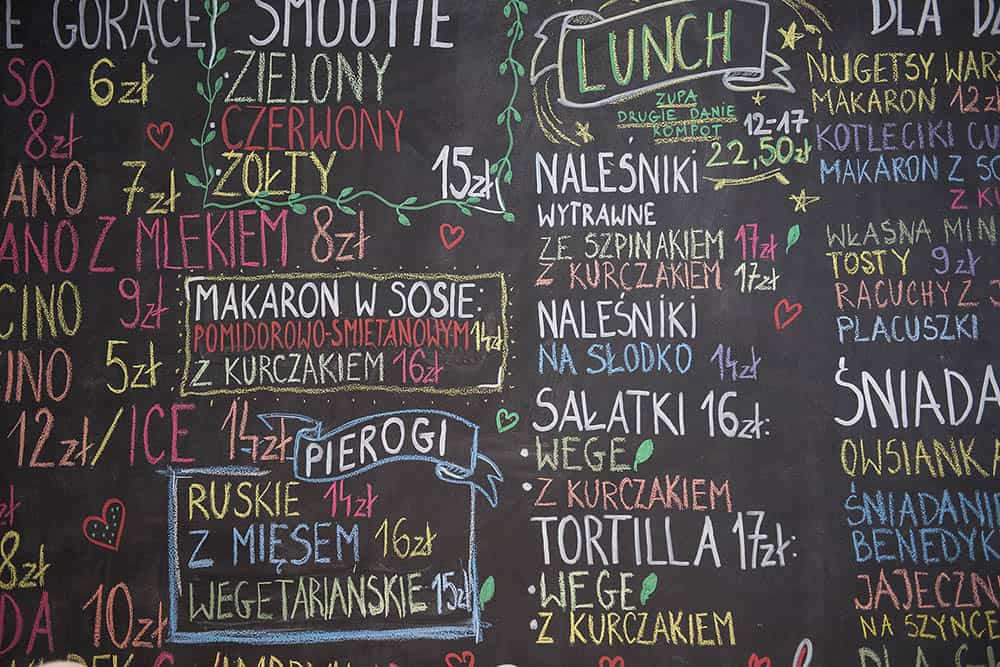 E GORĄCE
SO 6zł
8zł
ANO 7zł
ANO Z MLEKIEM 8zł
CINO 9zł
INO 5zł
12zł/ICE 14zł
zł
8zł
DA 10zł
SMOOTIE
•ZIELONY
•CZERWONY
•ŻÓŁTY 15zł
MAKARON W SOSIE:
POMIDOROWO-ŚMIETANOWYM 14zł
Z KURCZAKIEM 16zł
PIEROGI
RUSKIE 14zł
Z MIĘSEM 16zł
WEGETARIAŃSKIE 15zł
LUNCH
ZUPA
DRUGIE DANIE
KOMPOT 12-17
22,50zł
NALEŚNIKI
WYTRAWNE
ZE SZPINAKIEM 17zł
Z KURCZAKIEM 17zł
NALEŚNIKI
NA SŁODKO 14zł
SAŁATKI 16zł:
•WEGE
•Z KURCZAKIEM
TORTILLA 17zł:
•WEGE
•Z KURCZAKIEM
DLA D
NUGETSY, WAR
MAKARON 12z
KOTLECIKI CU
MAKARON Z SO
Z KU
WŁASNA MIN
TOSTY 9zł
RACUCHY Z J
PLACUSZKI
ŚNIADA
OWSIANKA
ŚNIADANIE
BENEDYK
JAJECZN
NA SZYNCE